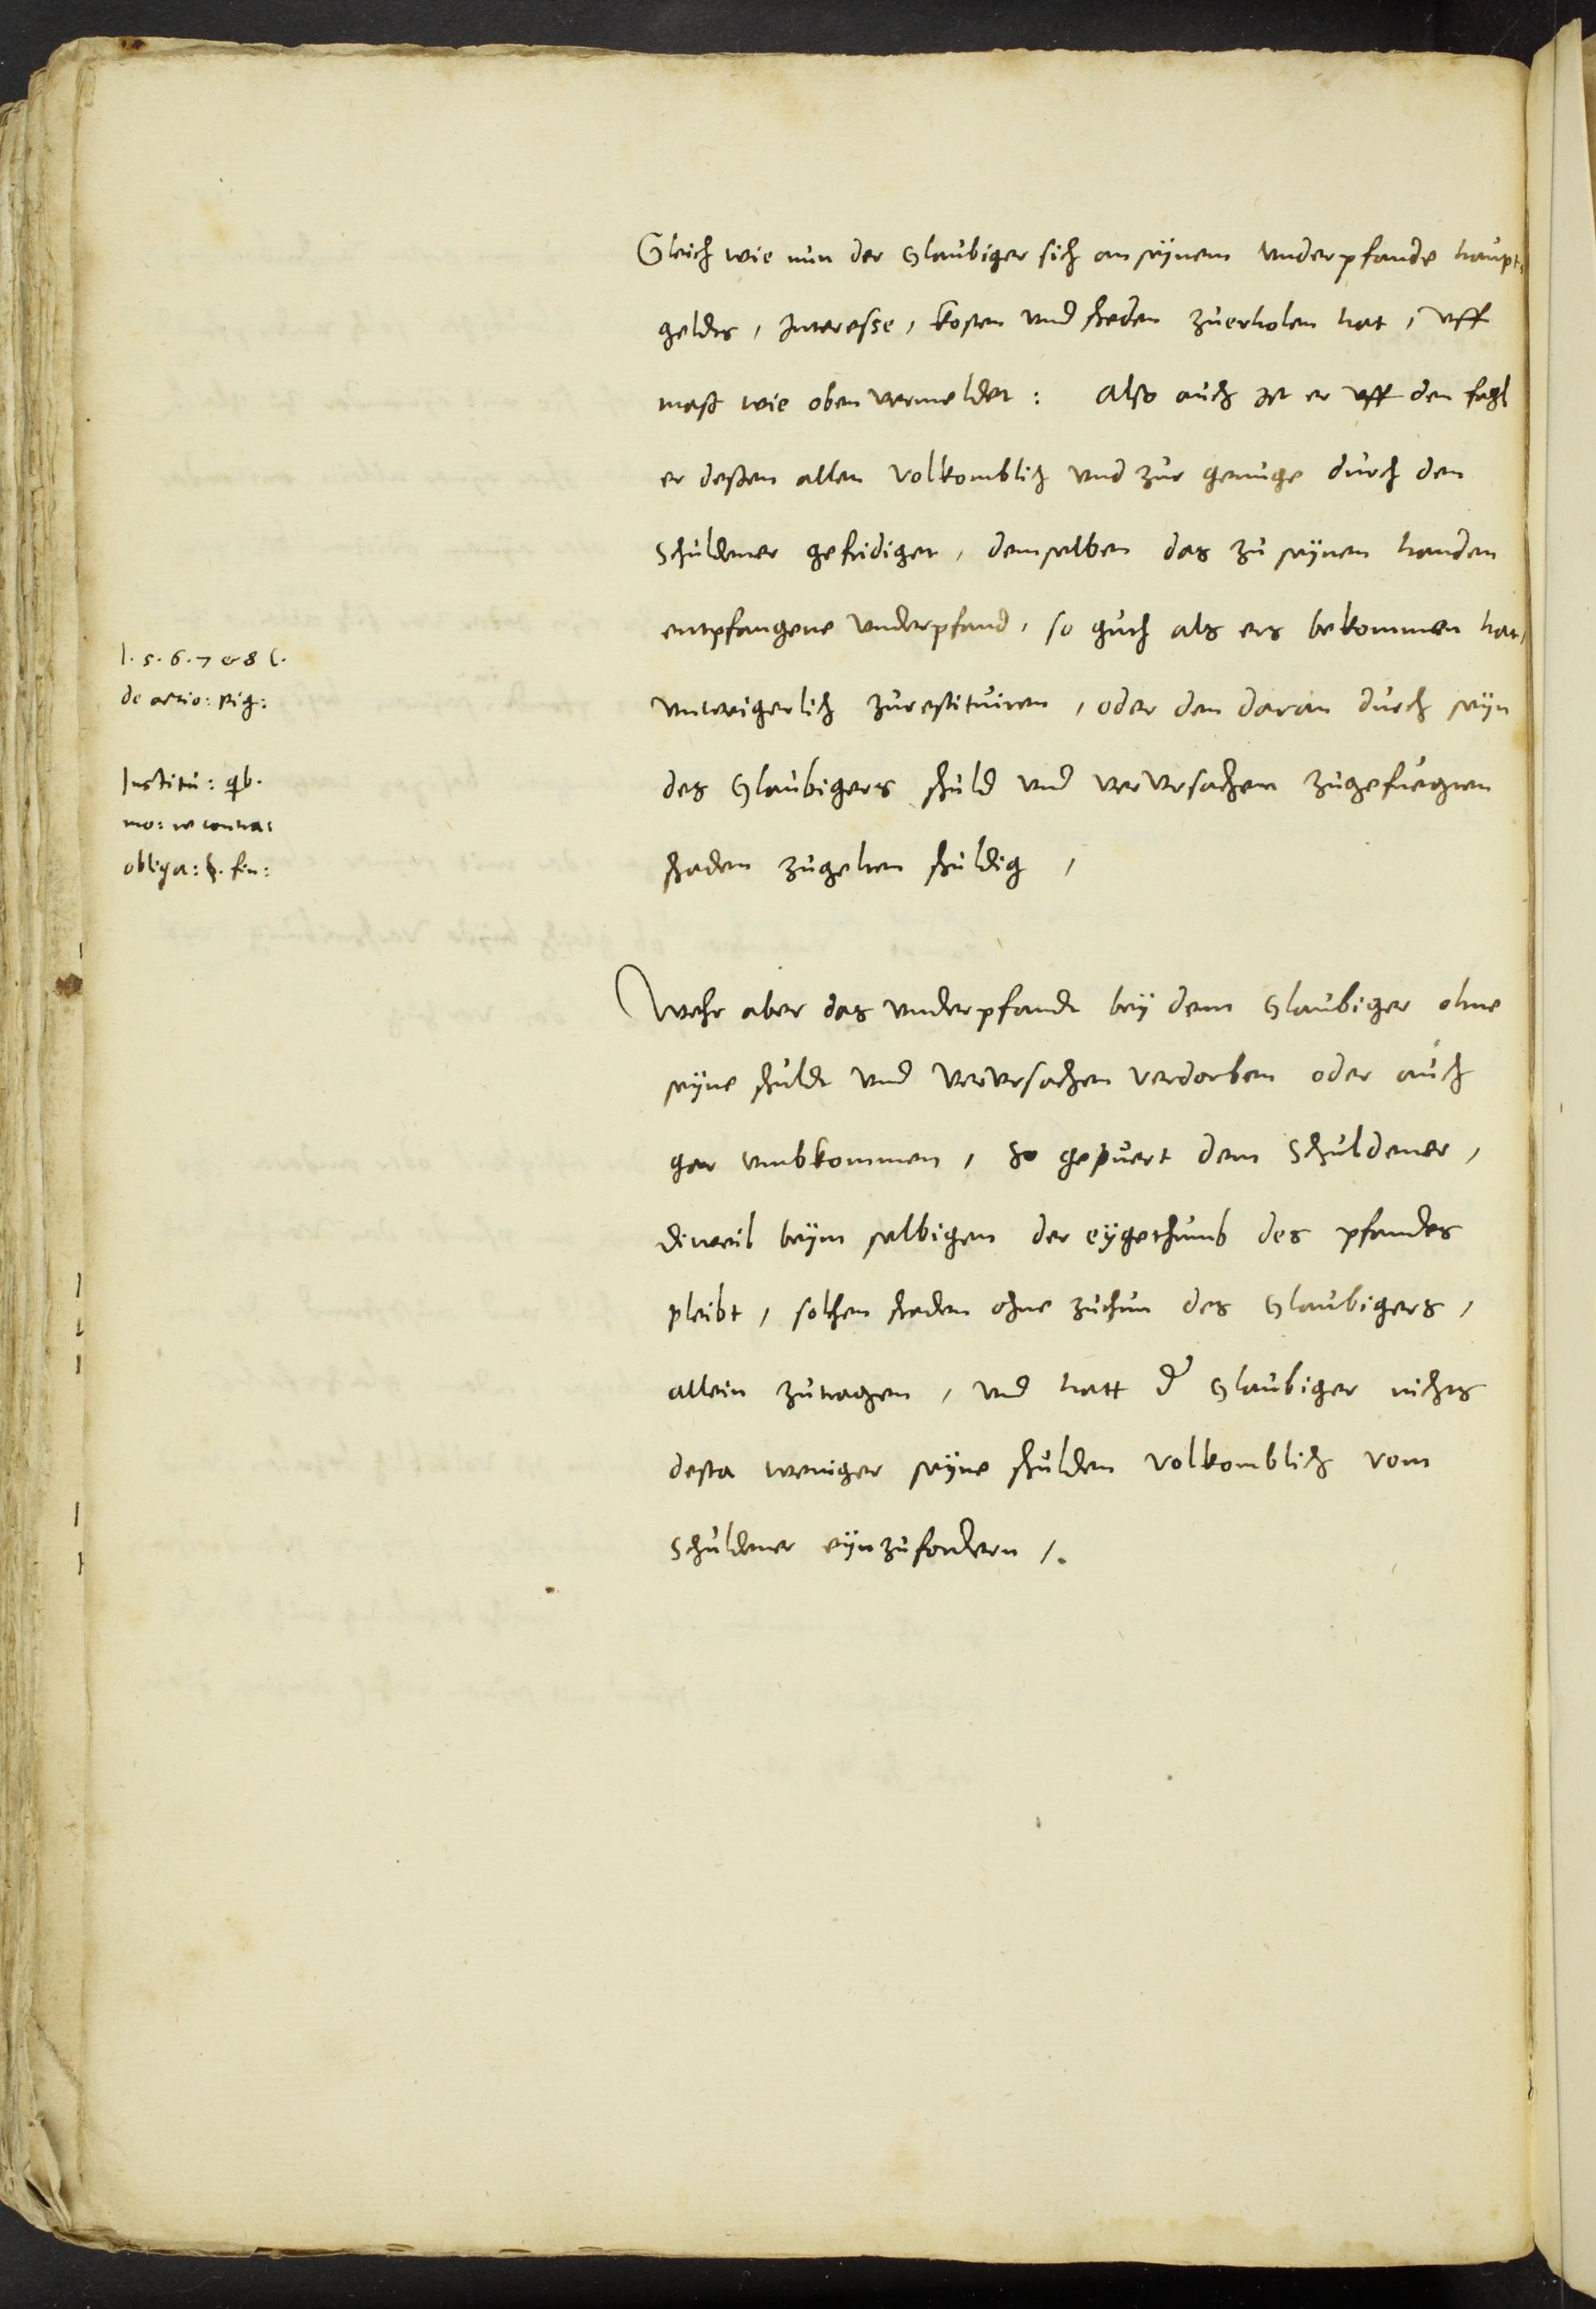 Gleich wie nun der Glaubiger sich an seÿnem Vnderpfande haupt-
geldts, Interesse, kosten vnd schaden zuerholen hat, vff
maß wie oben vermeldet: Also auch ist er vff den fahl
er deßen allen volkomblich vnd zur genuge durch den
Schuldener gefridiget, demselben das zu seÿnem handen
entpfangene Vnderpfand, so guth als ers bekommen hat,
vnweigerlich zurestituiren, oder den daran durch seÿn
des Glaubigers schuld vnd vervrsachen zugefuegten
schaden zugelten schuldig,
l. 5. 6. 7 et 8 C.
de actio: pig:
Institu: qb.
mo: re contra:
obliga: §. fin:
Wehr aber das vnderpfandt beÿ dem Glaubiger ohne
seÿne schuldt vnd vervrsachen verdorben oder auch
gar vmbkommen, So gepuert dem Schuldener,
diweil beÿm selbigen der eÿgethumb des pfandes
pleibt, solchen schaden ohne zuthun des Glaubigers,
allein zutragen, vnd hatt der Glaubiger nichts
desta weniger seÿne schulden volkomblich vom
Schuldener eÿnzufordern /.